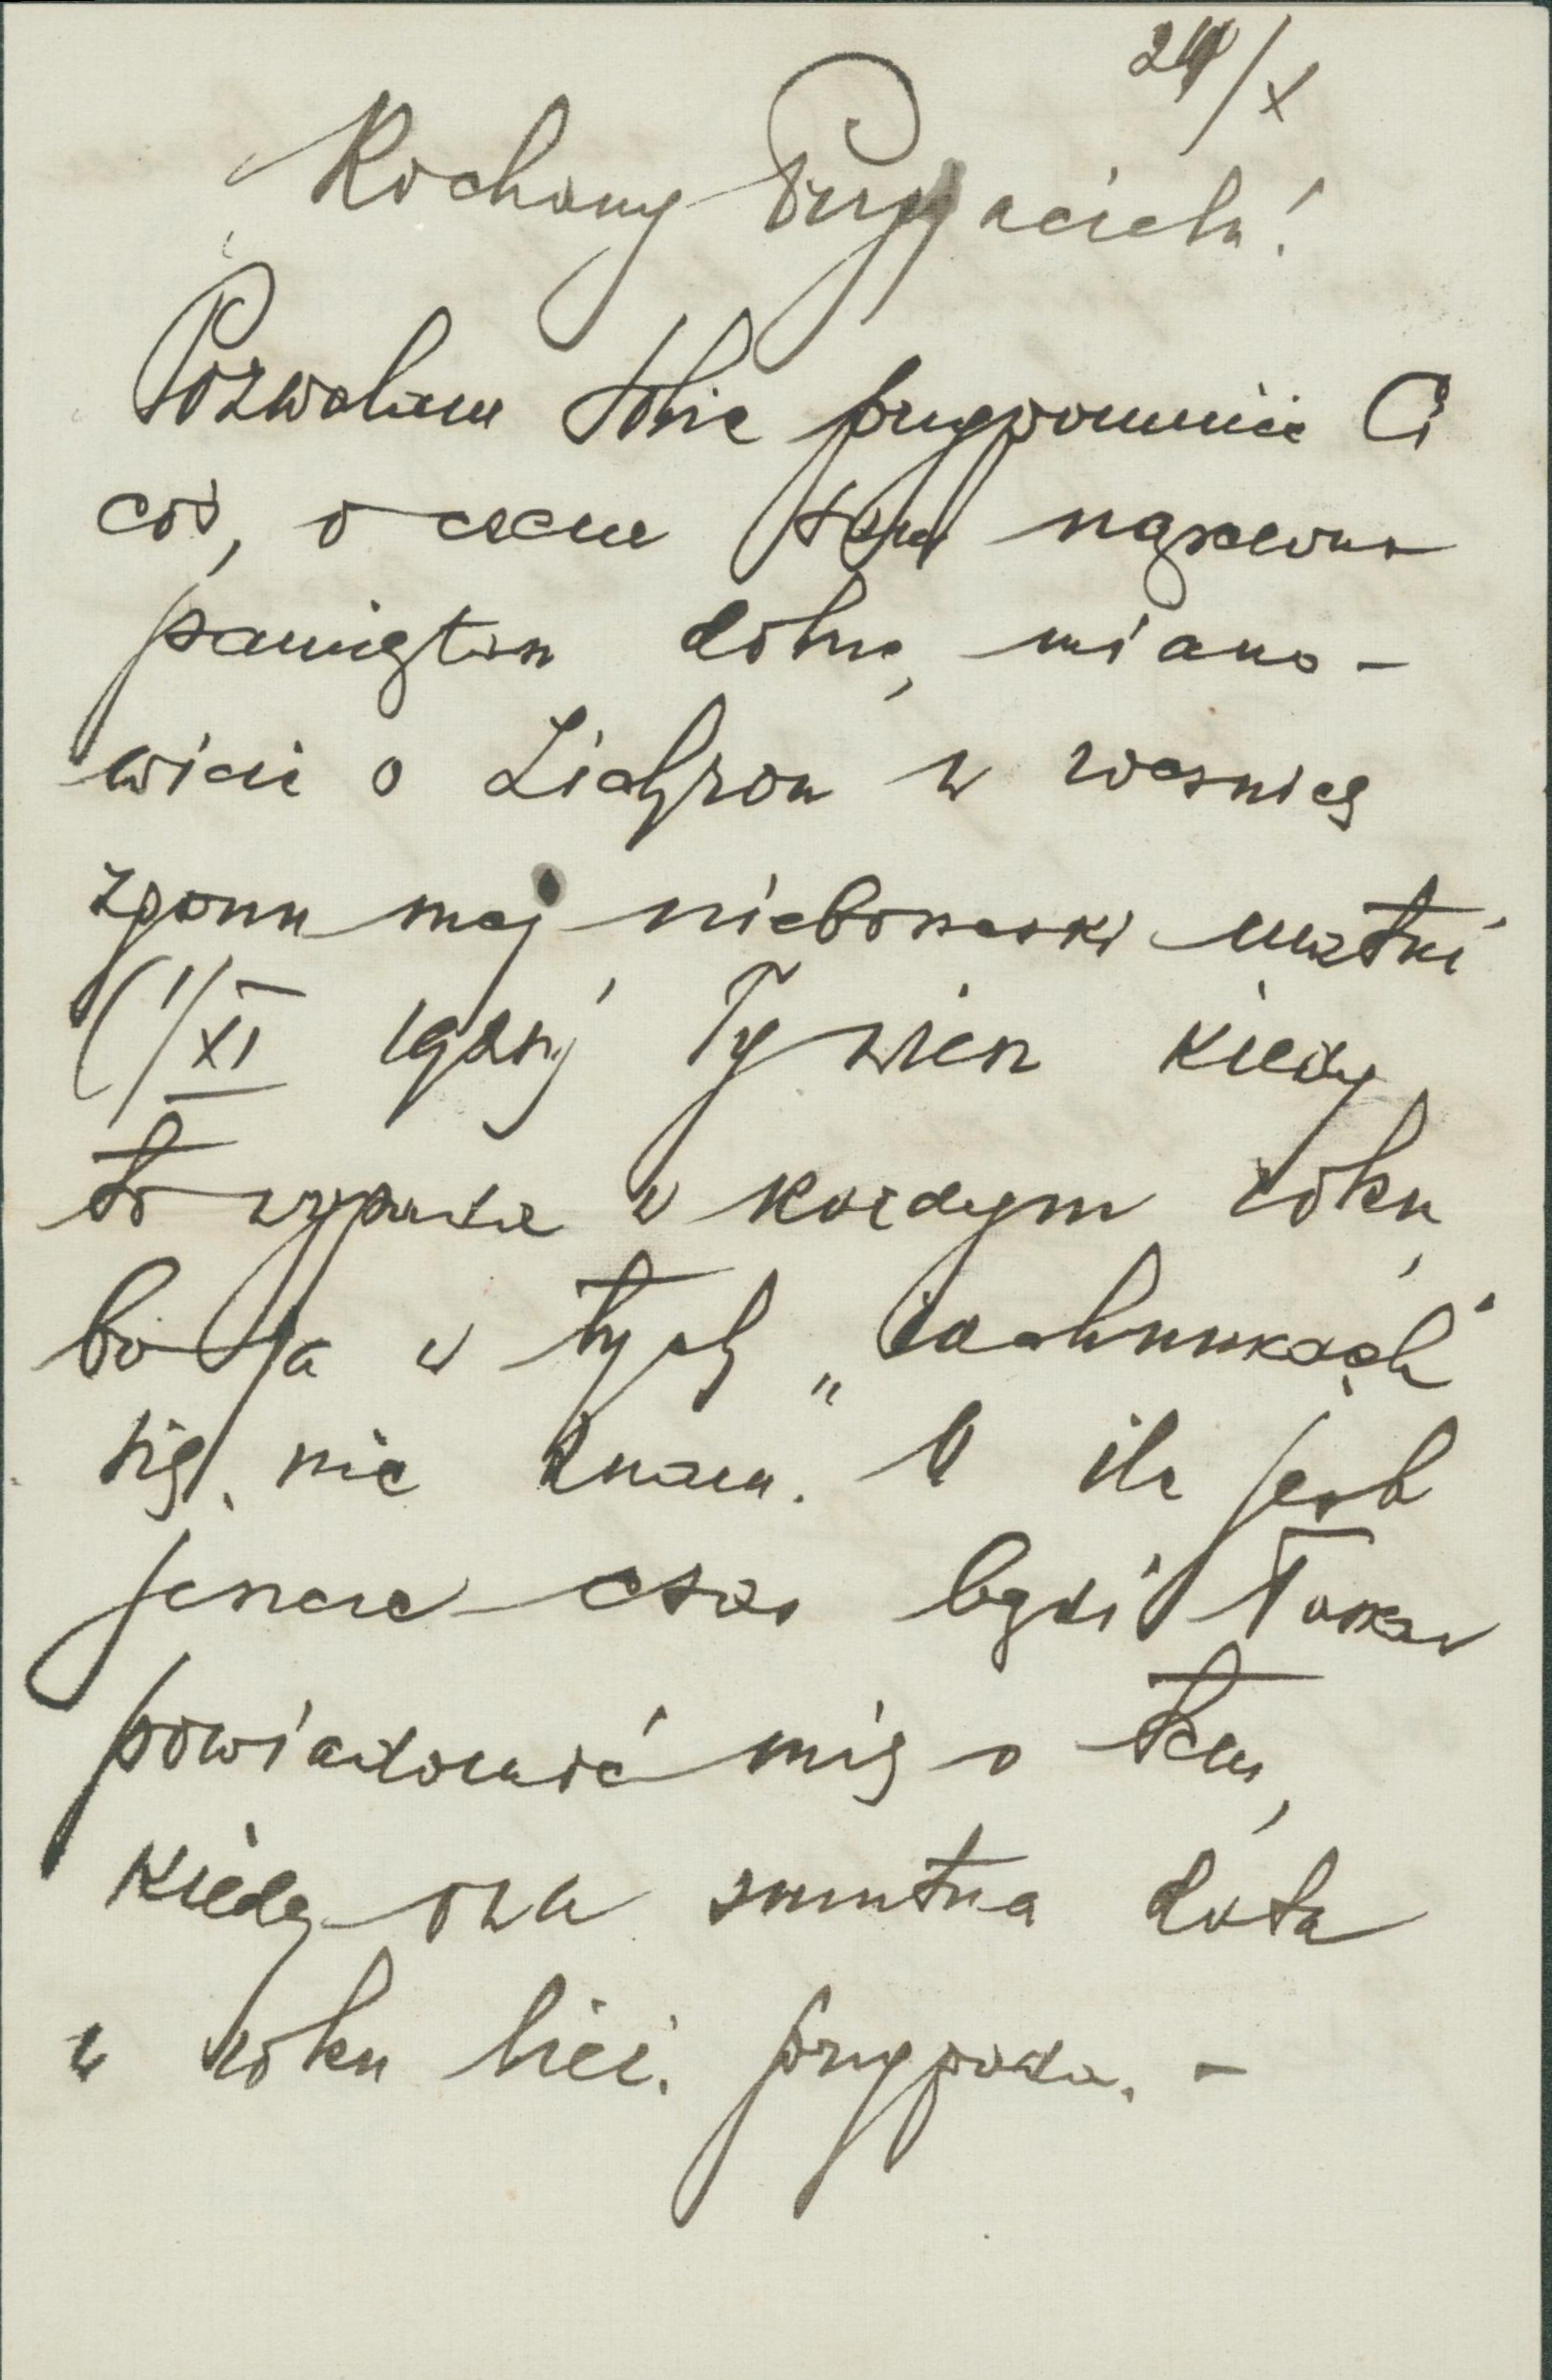 24/X
Kochany Przyjacielu!
Pozwalam sobie przypomnieć Ci
coś, o czem sam napewno
pamiętasz dobrze, miano-
wicie o w rocznicę
zgonu mej nieboszczki matki
(1/XI Ty wiesz kiedy
to wypada w każdym roku,
bo ja w tych „rachunkach”
się nie znam. O ile jest
jeszcze czas bądź łaskaw
powiadomić mię o tem,
kiedy owa smutna data
w roku bież. przypada. –